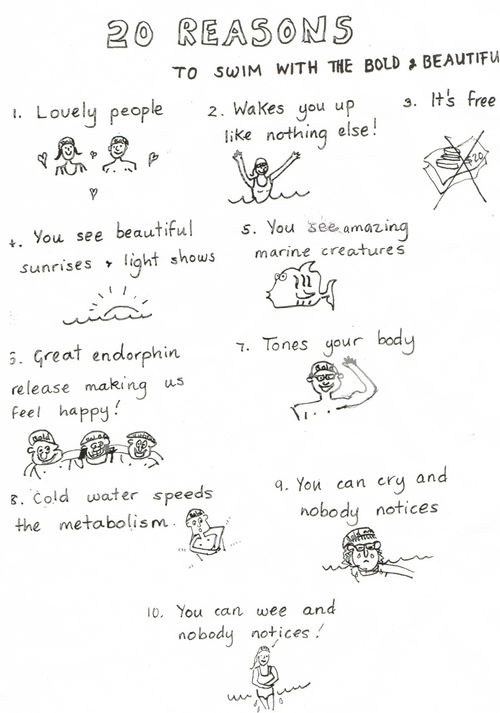 20 REASONS
TO SWIM WITH THE BOLD & BEAUTIFU
1. Lovely people
2. Wakes you up
like nothing else!
3. It's free
$20
4. You see beautiful
sunrises & light shows
5. You see amazing
marine creatures
6. Great endorphin
release making us
feel happy!
Bold
7. Tones your body
Bold
8. Cold water speeds
the metabolism.
9. You can cry and
nobody notices
10. You can wee and
nobody notices!